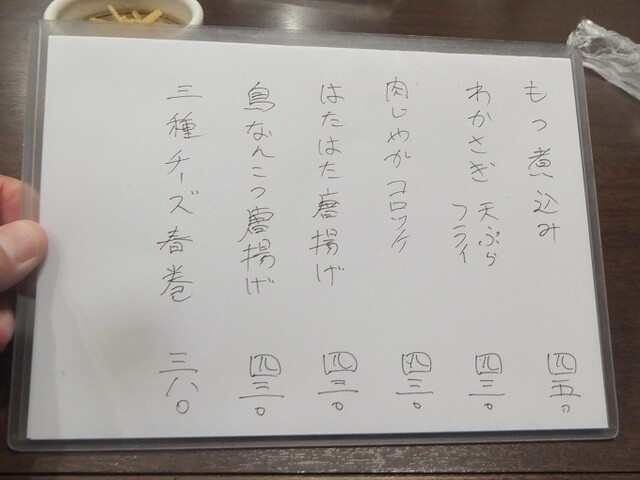 もつ煮込み 四五〇
わかさぎ 天ぷら フライ 四三〇
肉じゃがコロッケ 四三〇
はたはた唐揚げ 四三〇
鳥なんこつ唐揚げ 四三〇
三種チーズ春巻 三八〇